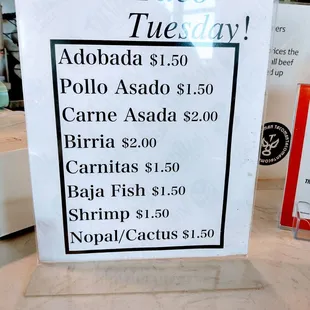 Tuesday!
Adobada $1.50
Pollo Asado $1.50
Carne Asada $2.00
Birria $2.00
Carnitas $1.50
Baja Fish $1.50
Shrimp $1.50
Nopal/Cactus $1.50
ers
rices the
all beef
d up